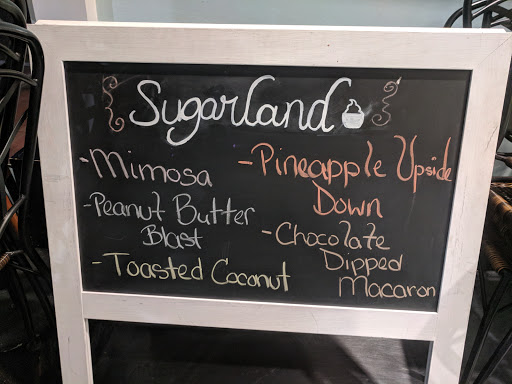 Sugarland
-Mimosa
-Peanut Butter
Blast
-Toasted Coconut
-Pineapple Upside
Down
-Chocolate
Dipped
Macaron